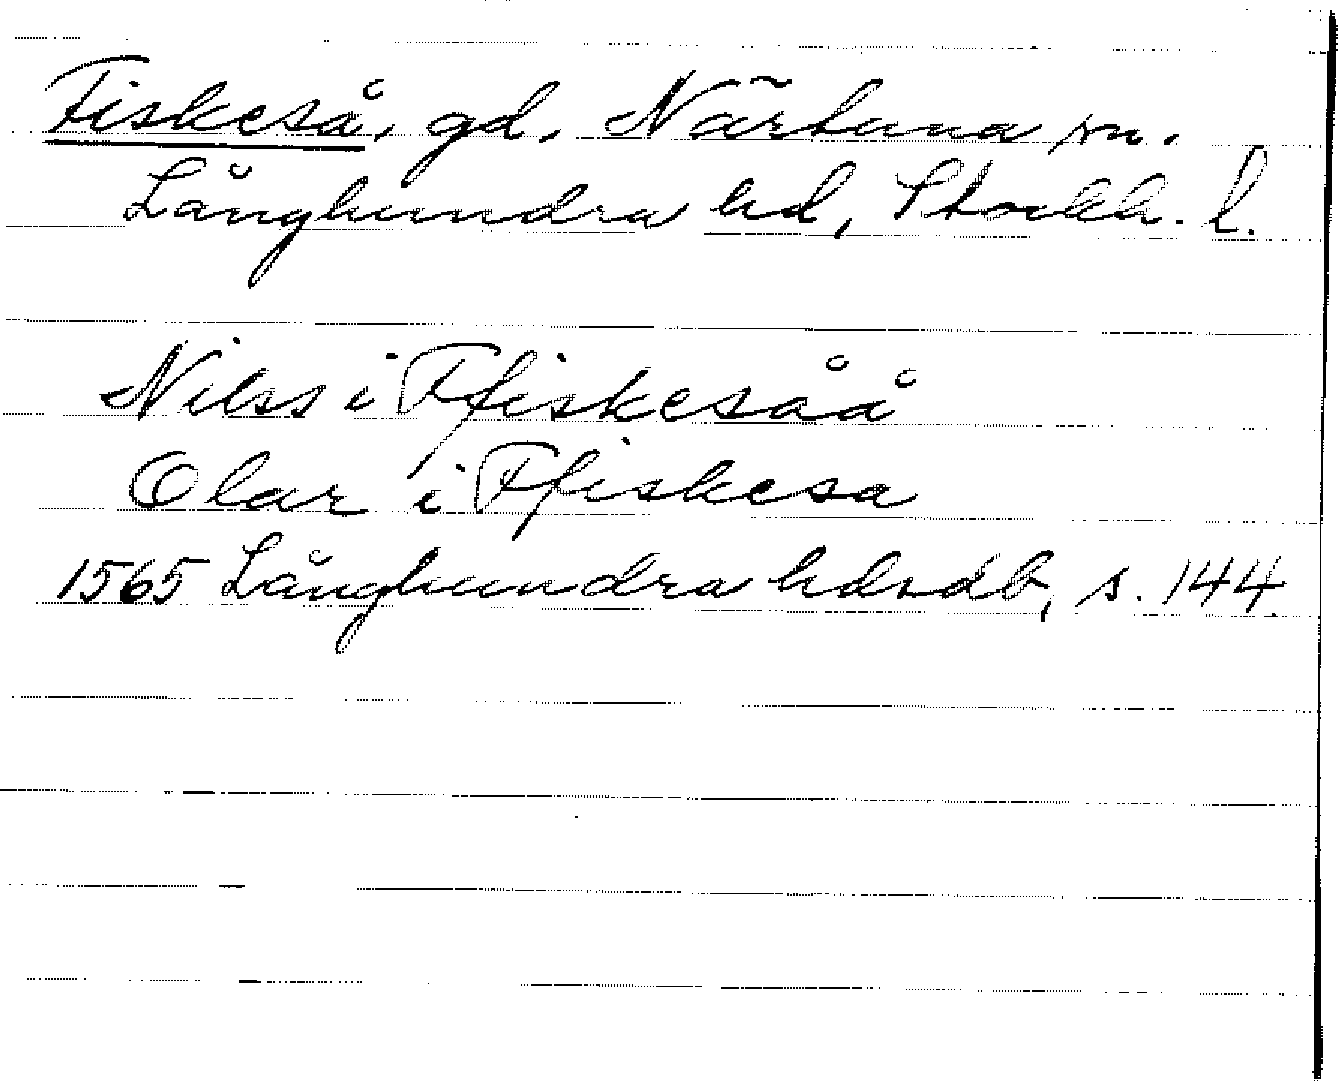 Fiskeså, gd, Närtuna sn.
Långhundra hd, Stockh. l.
Nilss i Ffiskesåå
Olar i Ffiskesa
1565 Långhundra hdrdb, s. 144.